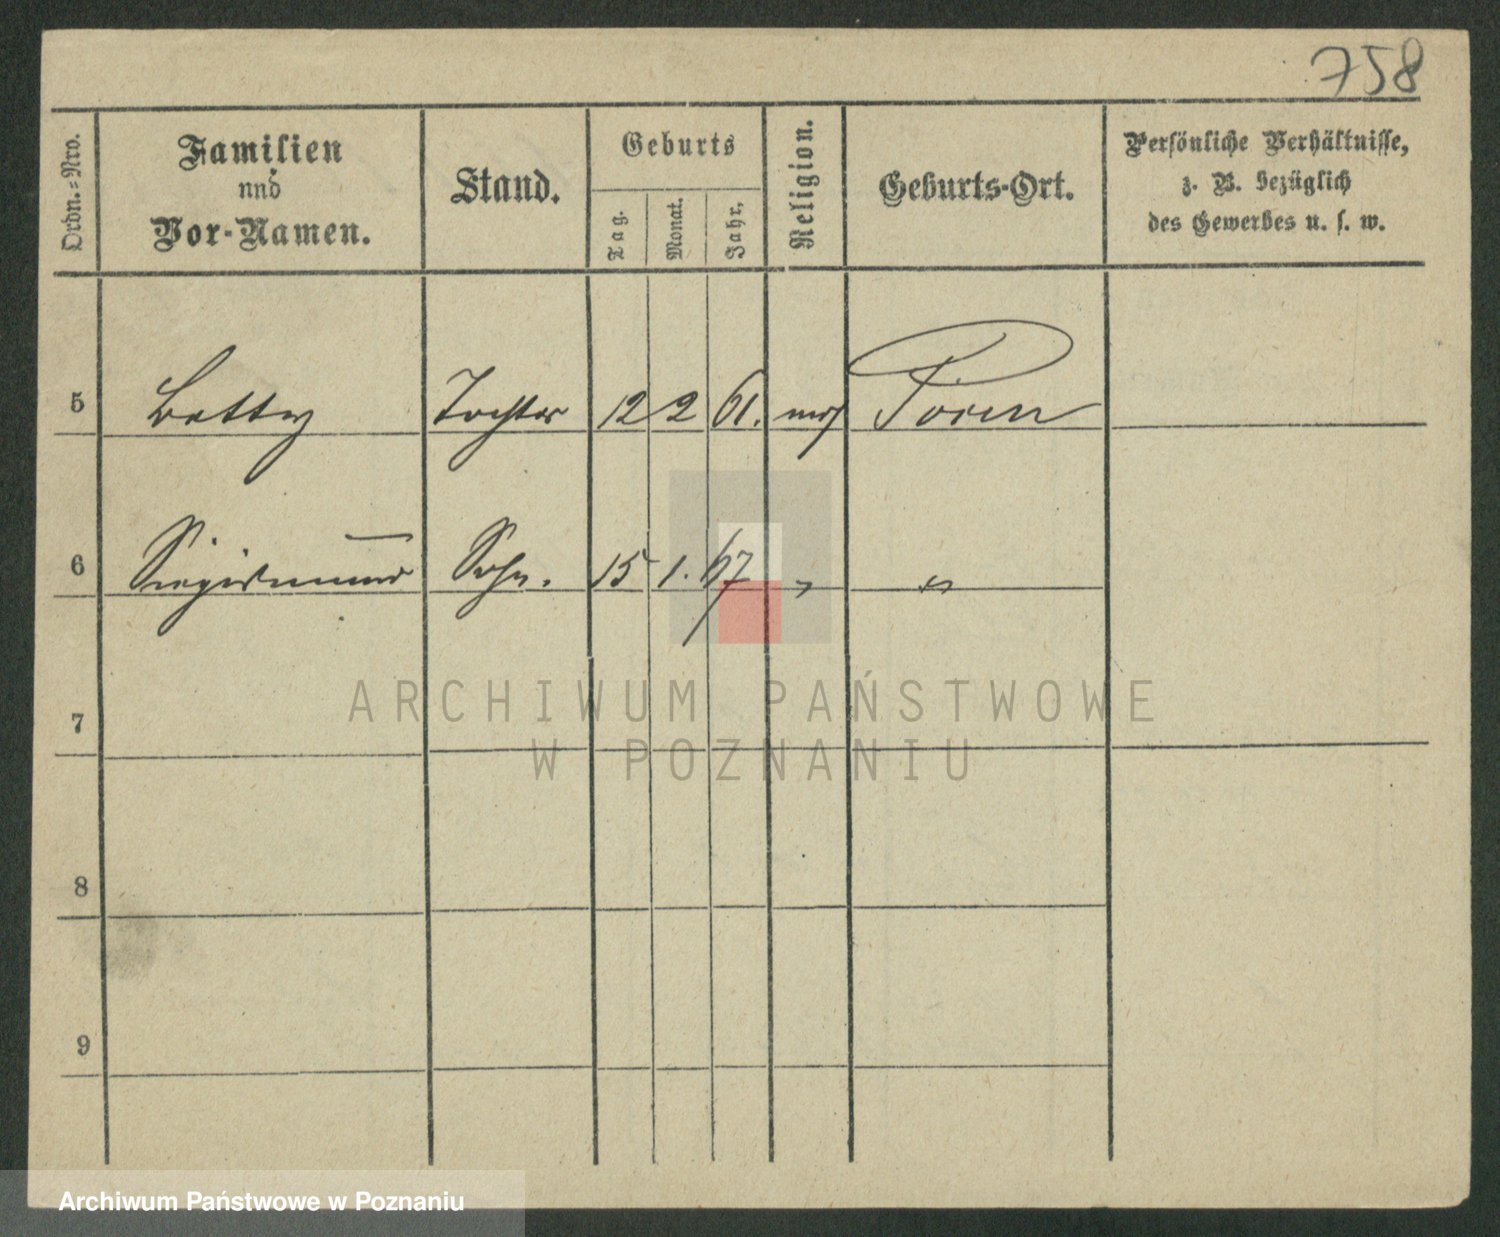 758
Ordn.=Nro.
Familien
und
Vor-Namen.
Stand.
Geburts
Tag.
Monat.
Jahr.
Religion.
Geburts-Ort.
Persönliche Verhältnisse,
z. B. bezüglich
des Gewerbes u. s. w.
5 Betty Tochter 12 2 61. mos Posen
6 Siegismund Sohn. 15 1. 67 " "
7
ARCHIWUM PAŃSTWOWE
W POZNANIU
8
9
Archiwum Państwowe w Poznaniu